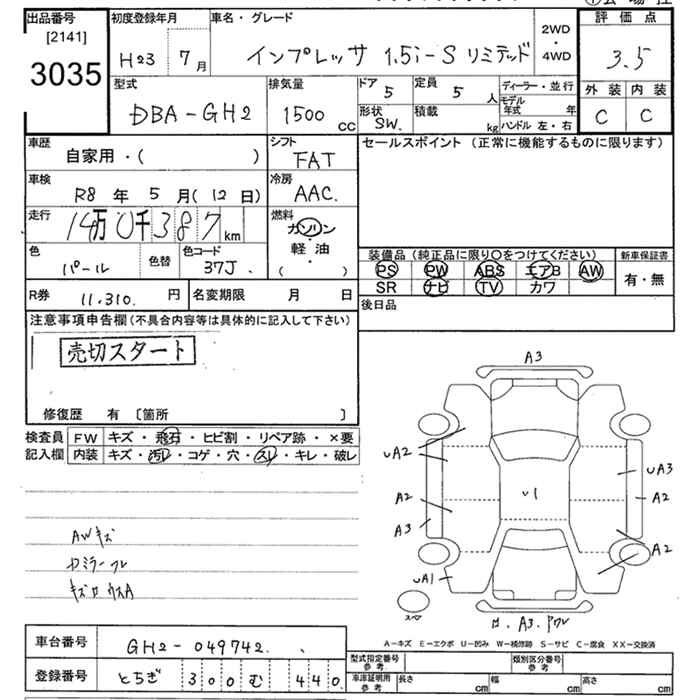 出品番号
[2141]
3035
初度登録年月
H23 7 月
車名・グレード
インプレッサ 1.5i-S リミテッド
2WD
・
4WD
評価点
3.5
外装 内装
C C
型式
DBA-GH2
排気量
1500 cc
ドア 5
定員 5 人
形状 SW.
積載 kg
ディーラー・並行
モデル年式 年
ハンドル 左・右
車歴
自家用・( )
シフト
FAT
セールスポイント (正常に機能するものに限ります)
車検
R8 年 5 月 (12 日)
冷房
AAC.
走行
14万0千387km
燃料
ガソリン
・
軽油
( )
色
パール
色替
色コード
37J.
装備品 (純正品に限り〇をつけてください)
PS PW ABS エアB AW
SR ナビ TV カワ
新車保証書
有・無
R券 11.310. 円
名変期限 月 日
後日品
注意事項申告欄 (不具合内容等は具体的に記入して下さい)
売切スタート
修復歴 有 〔箇所 〕
検査員
記入欄
FW キズ・飛石・ヒビ割・リペア跡・×要
内装 キズ・汚レ・コゲ・穴・スレ・キレ・破レ
AWキズ
A3
UA2
A2
A3
UA1
U1
UA3
A2
A2
A-キズ E-エクボ U-凹み W-補修跡 S-サビ C-腐食 XX-交換済
車台番号 GH2-049742.
登録番号 とちぎ 300 む 440
型式指定番号 参考
類別区分番号 参考
車庫証明用 参考
長さ cm
幅 cm
高さ cm